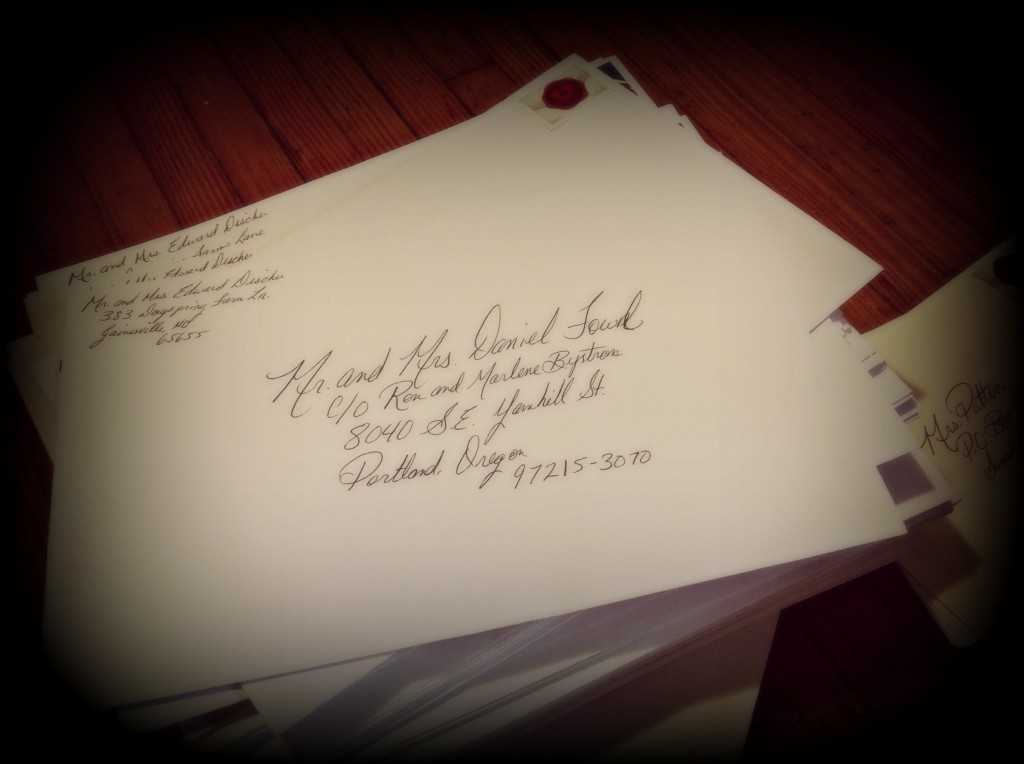 Mr. and Mrs. Edward Discher
Farms Lane
Edward Discher
Mr. and Mrs Edward Discher
383 Dayspring Farm Ln.
Gainesville, MO
65655
Mr. and Mrs. Daniel Fowd
C/O Ron and Marlene Bystrom
8040 S.E. Yamhill St.
Portland, Oregon
97215-3070
Mrs. Patton
P.O. Bo